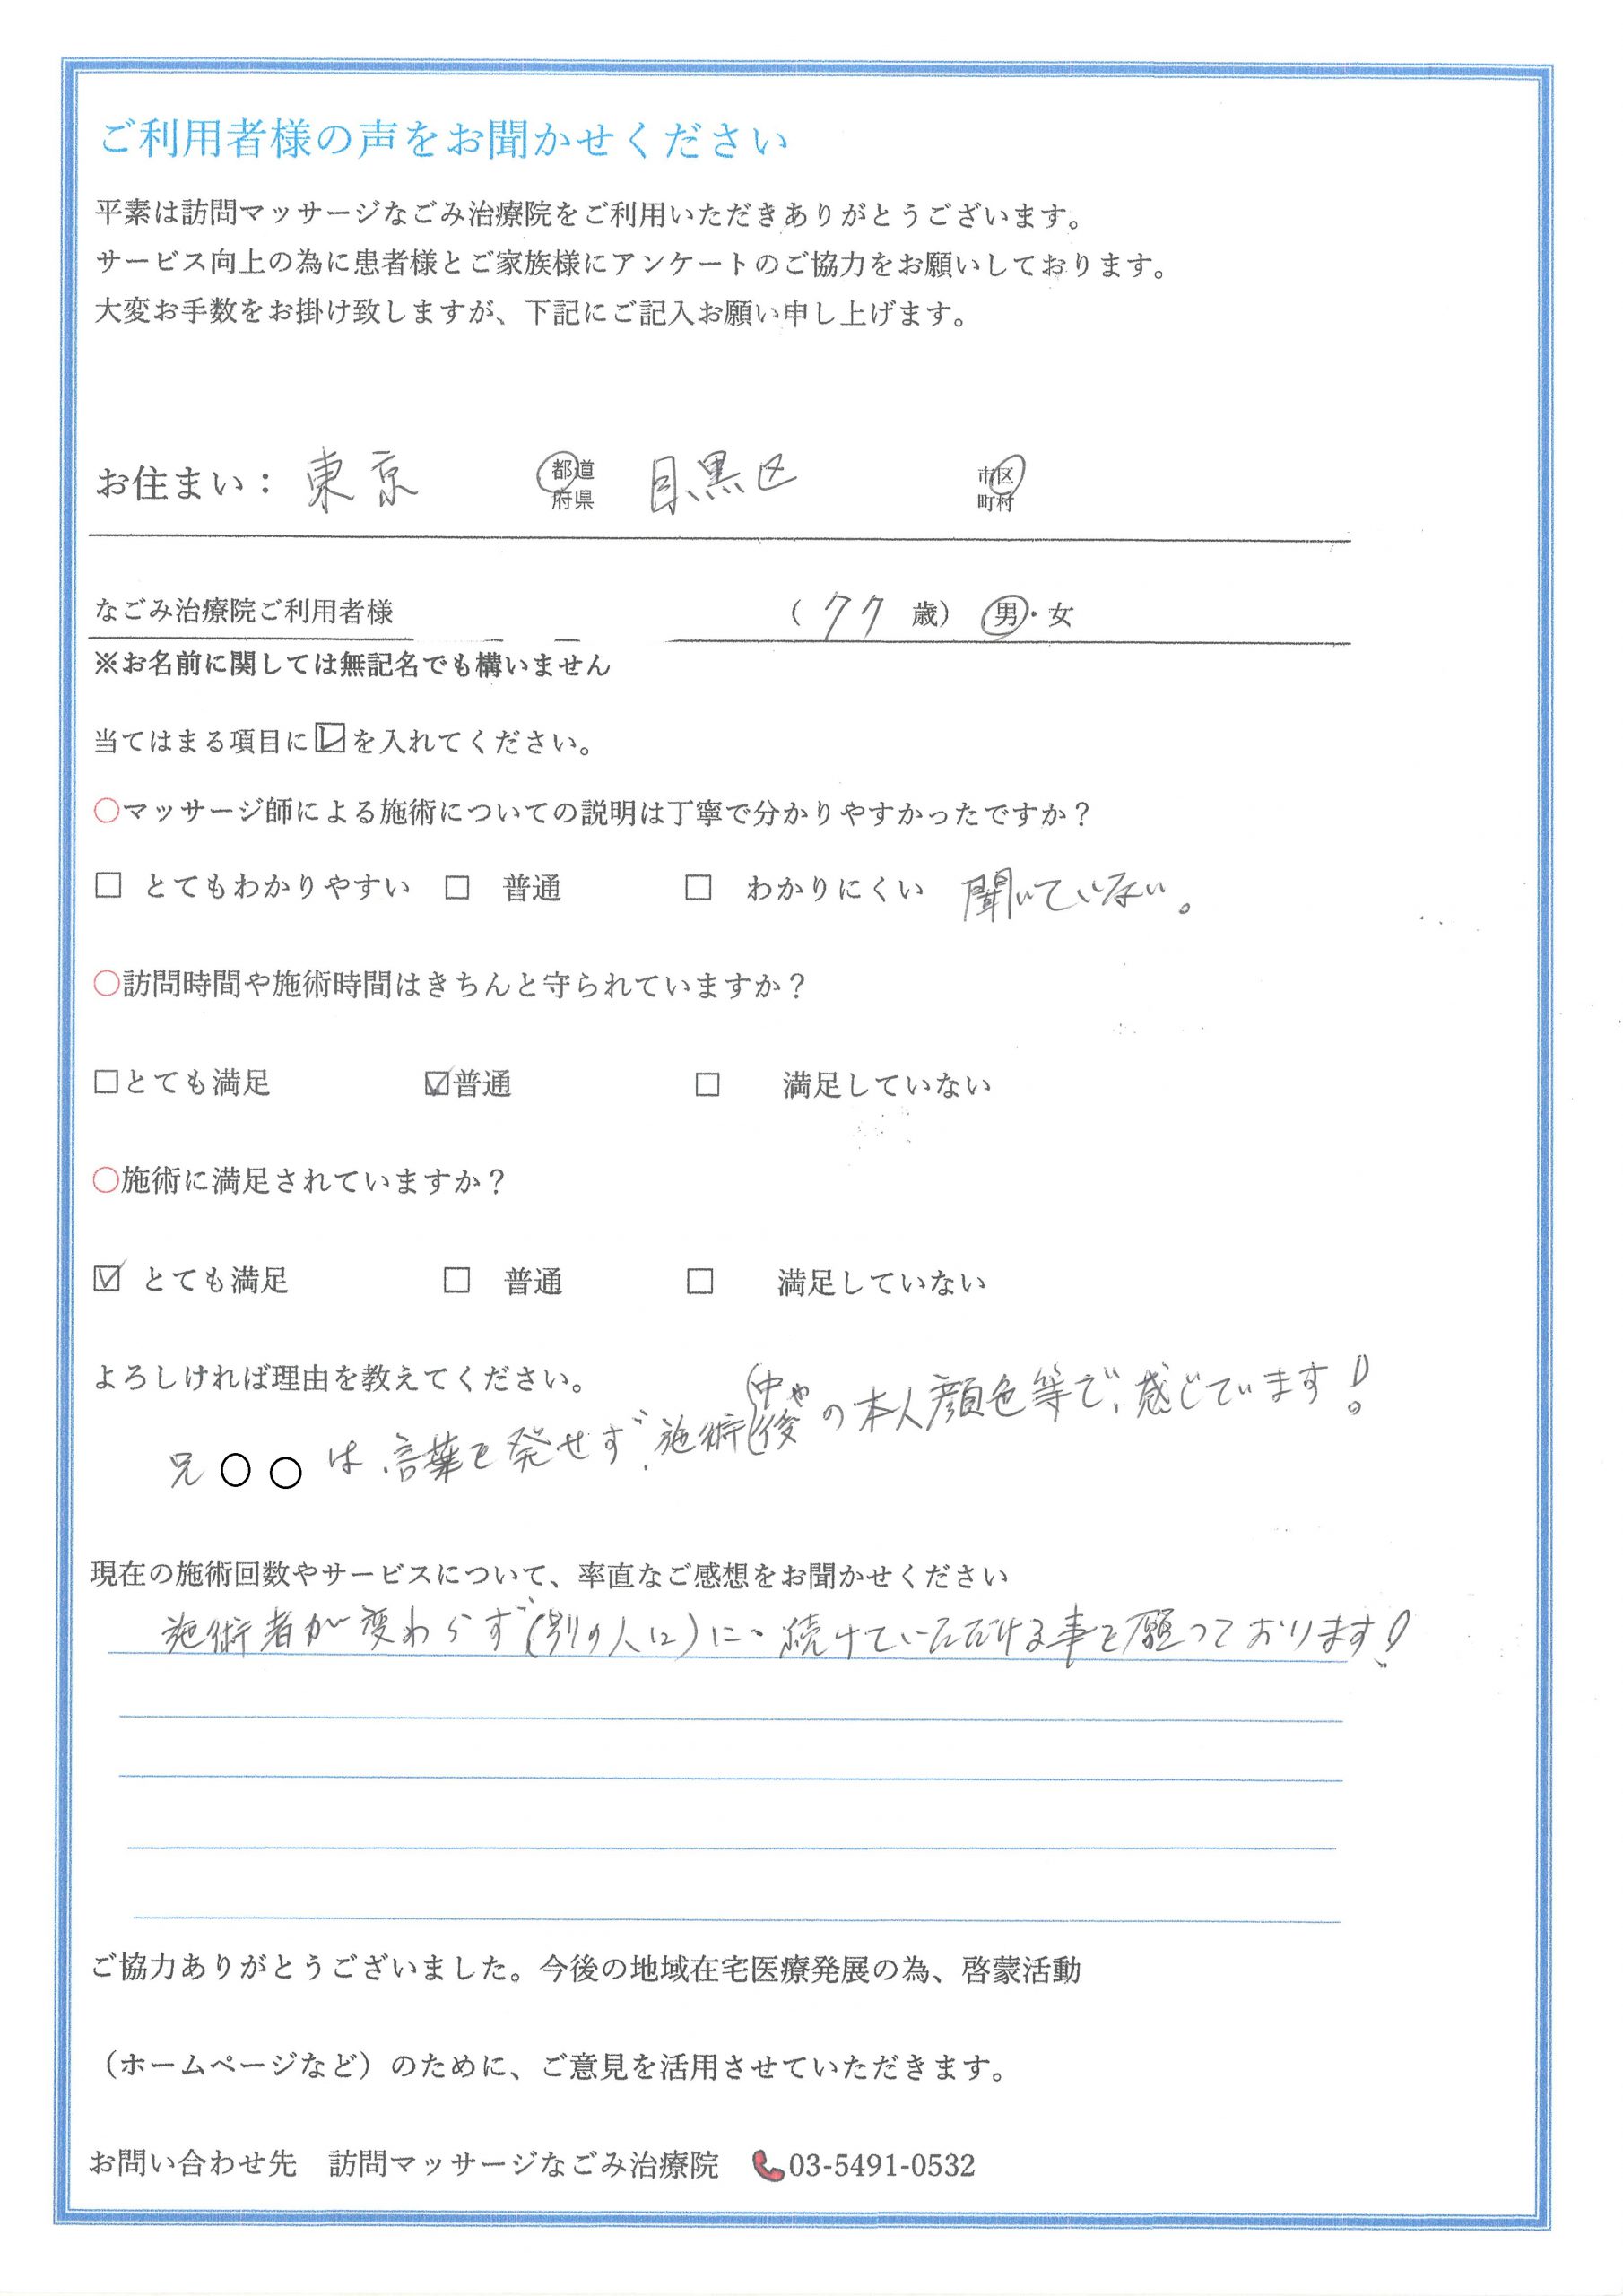 ご利用者様の声をお聞かせください
平素は訪問マッサージなごみ治療院をご利用いただきありがとうございます。
サービス向上の為に患者様とご家族様にアンケートのご協力をお願いしております。
大変お手数をお掛け致しますが、下記にご記入お願い申し上げます。
お住まい： 東京 都道府県 目黒区 市区町村
なごみ治療院ご利用者様 （ 77 歳） 男・女
※お名前に関しては無記名でも構いません
当てはまる項目に☑を入れてください。
○マッサージ師による施術についての説明は丁寧で分かりやすかったですか？
□ とてもわかりやすい □ 普通 □ わかりにくい 聞いていない。
○訪問時間や施術時間はきちんと守られていますか？
□とても満足 ☑普通 □ 満足していない
○施術に満足されていますか？
☑ とても満足 □ 普通 □ 満足していない
よろしければ理由を教えてください。
兄○○は、言葉を発せず、施術(中や後の本人顔色等で、感じています！
現在の施術回数やサービスについて、率直なご感想をお聞かせください
施術者が変わらず(別の人に)に、続けていただける事を願っております！
ご協力ありがとうございました。今後の地域在宅医療発展の為、啓蒙活動
（ホームページなど）のために、ご意見を活用させていただきます。
お問い合わせ先 訪問マッサージなごみ治療院 📞03-5491-0532